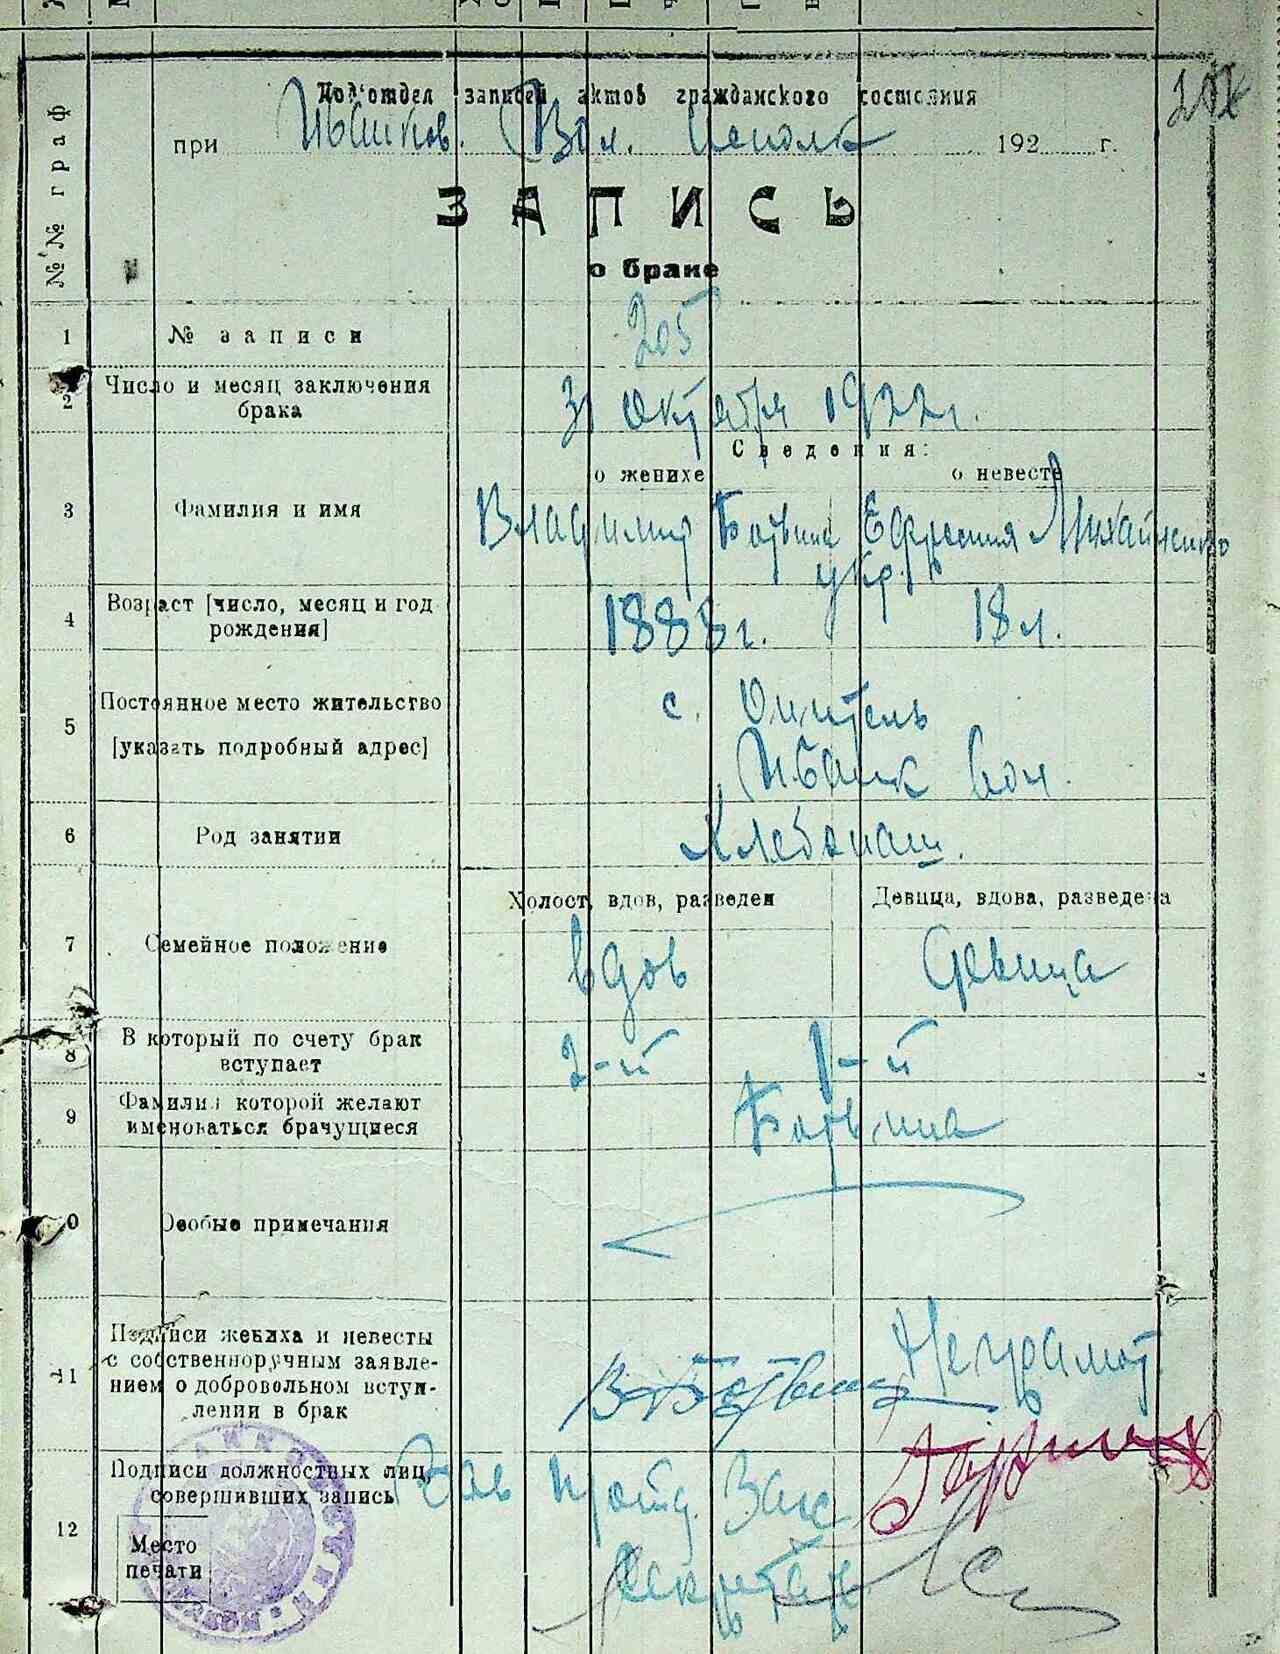 Под‘отдел записей актов гражданского состояния
при Ивашков. Вол. Исполк 192 г.
202
№№ граф
ЗАПИСЬ
о браке
1 № записи 205
2 Число и месяц заключения брака 31 Октября 1922 г.
Сведения:
о женихе о невесте
3 Фамилия и имя Владимир Ботвина Ефросиния Михайленко
укр.
4 Возраст [число, месяц и год рождения] 1888 г. 18 л.
5 Постоянное место жительство с.
[указать подробный адрес] Ивашк вол.
6 Род занятии Хлебопаш.
Холост, вдов, разведен Девица, вдова, разведена
7 Семейное положение вдов девица
8 В который по счету брак вступает 2-й 1-й
9 Фамилия которой желают именоваться брачущиеся Ботвина
10 Особые примечания
11 Подписи жениха и невесты с собственноручным заявлением о добровольном вступлении в брак В Ботвина Неграмот
12 Подписи должностных лиц, совершивших запись
Секретарь
Место печати